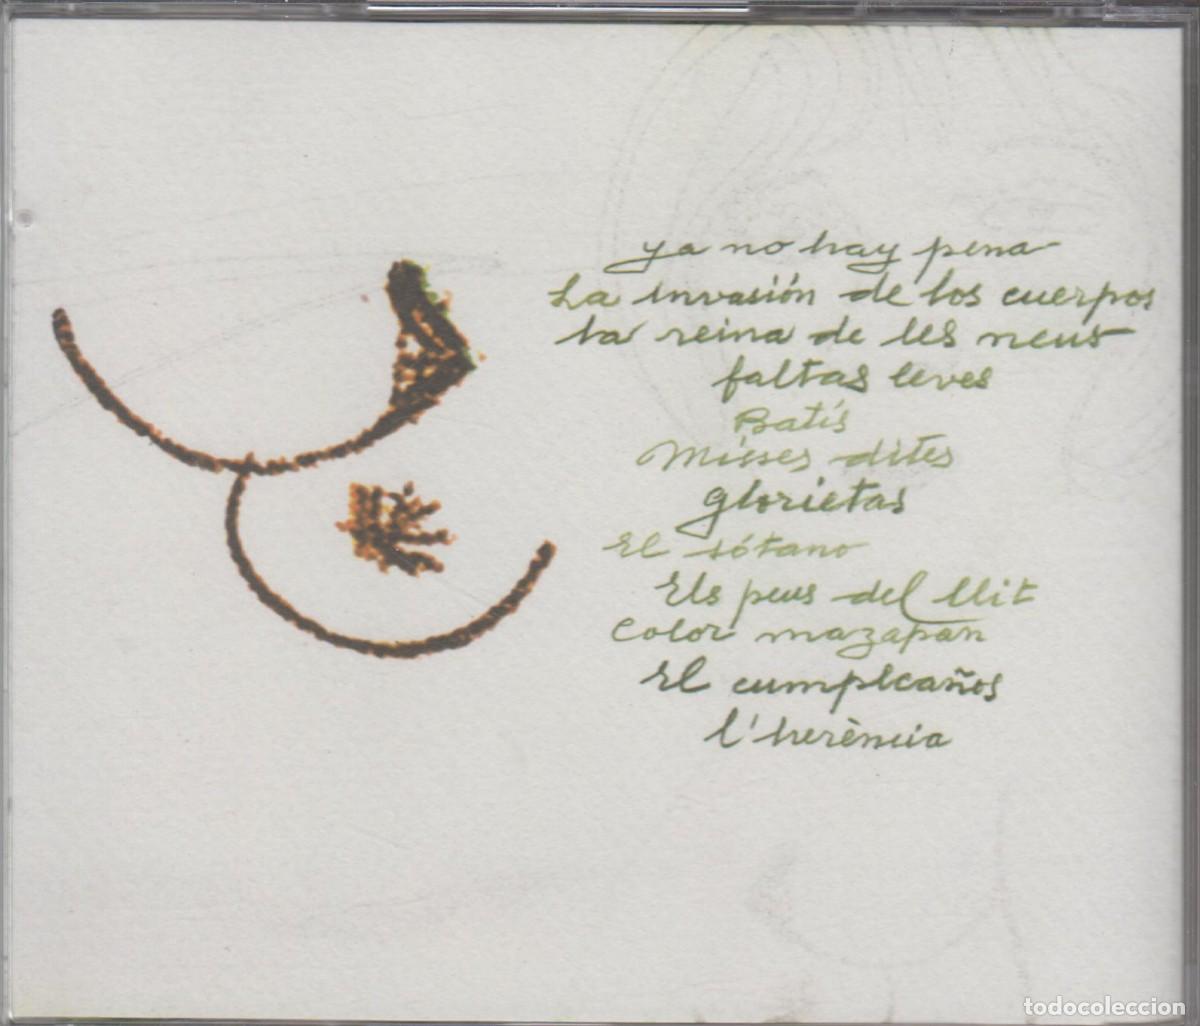 ya no hay pena
La invasión de los cuerpos
la reina de les neus
faltas leves
Batís
Misses dites
glorietas
El sótano
Els peus del llit
Color mazapán
El cumpleaños
l'herència
todocoleccion